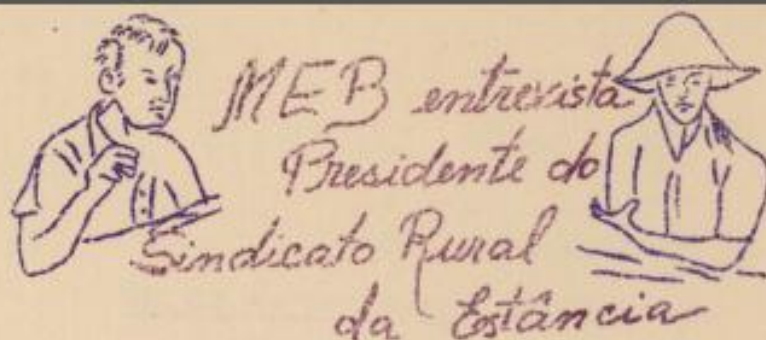 MEB entrevista
Presidente do
Sindicato Rural
da Estância